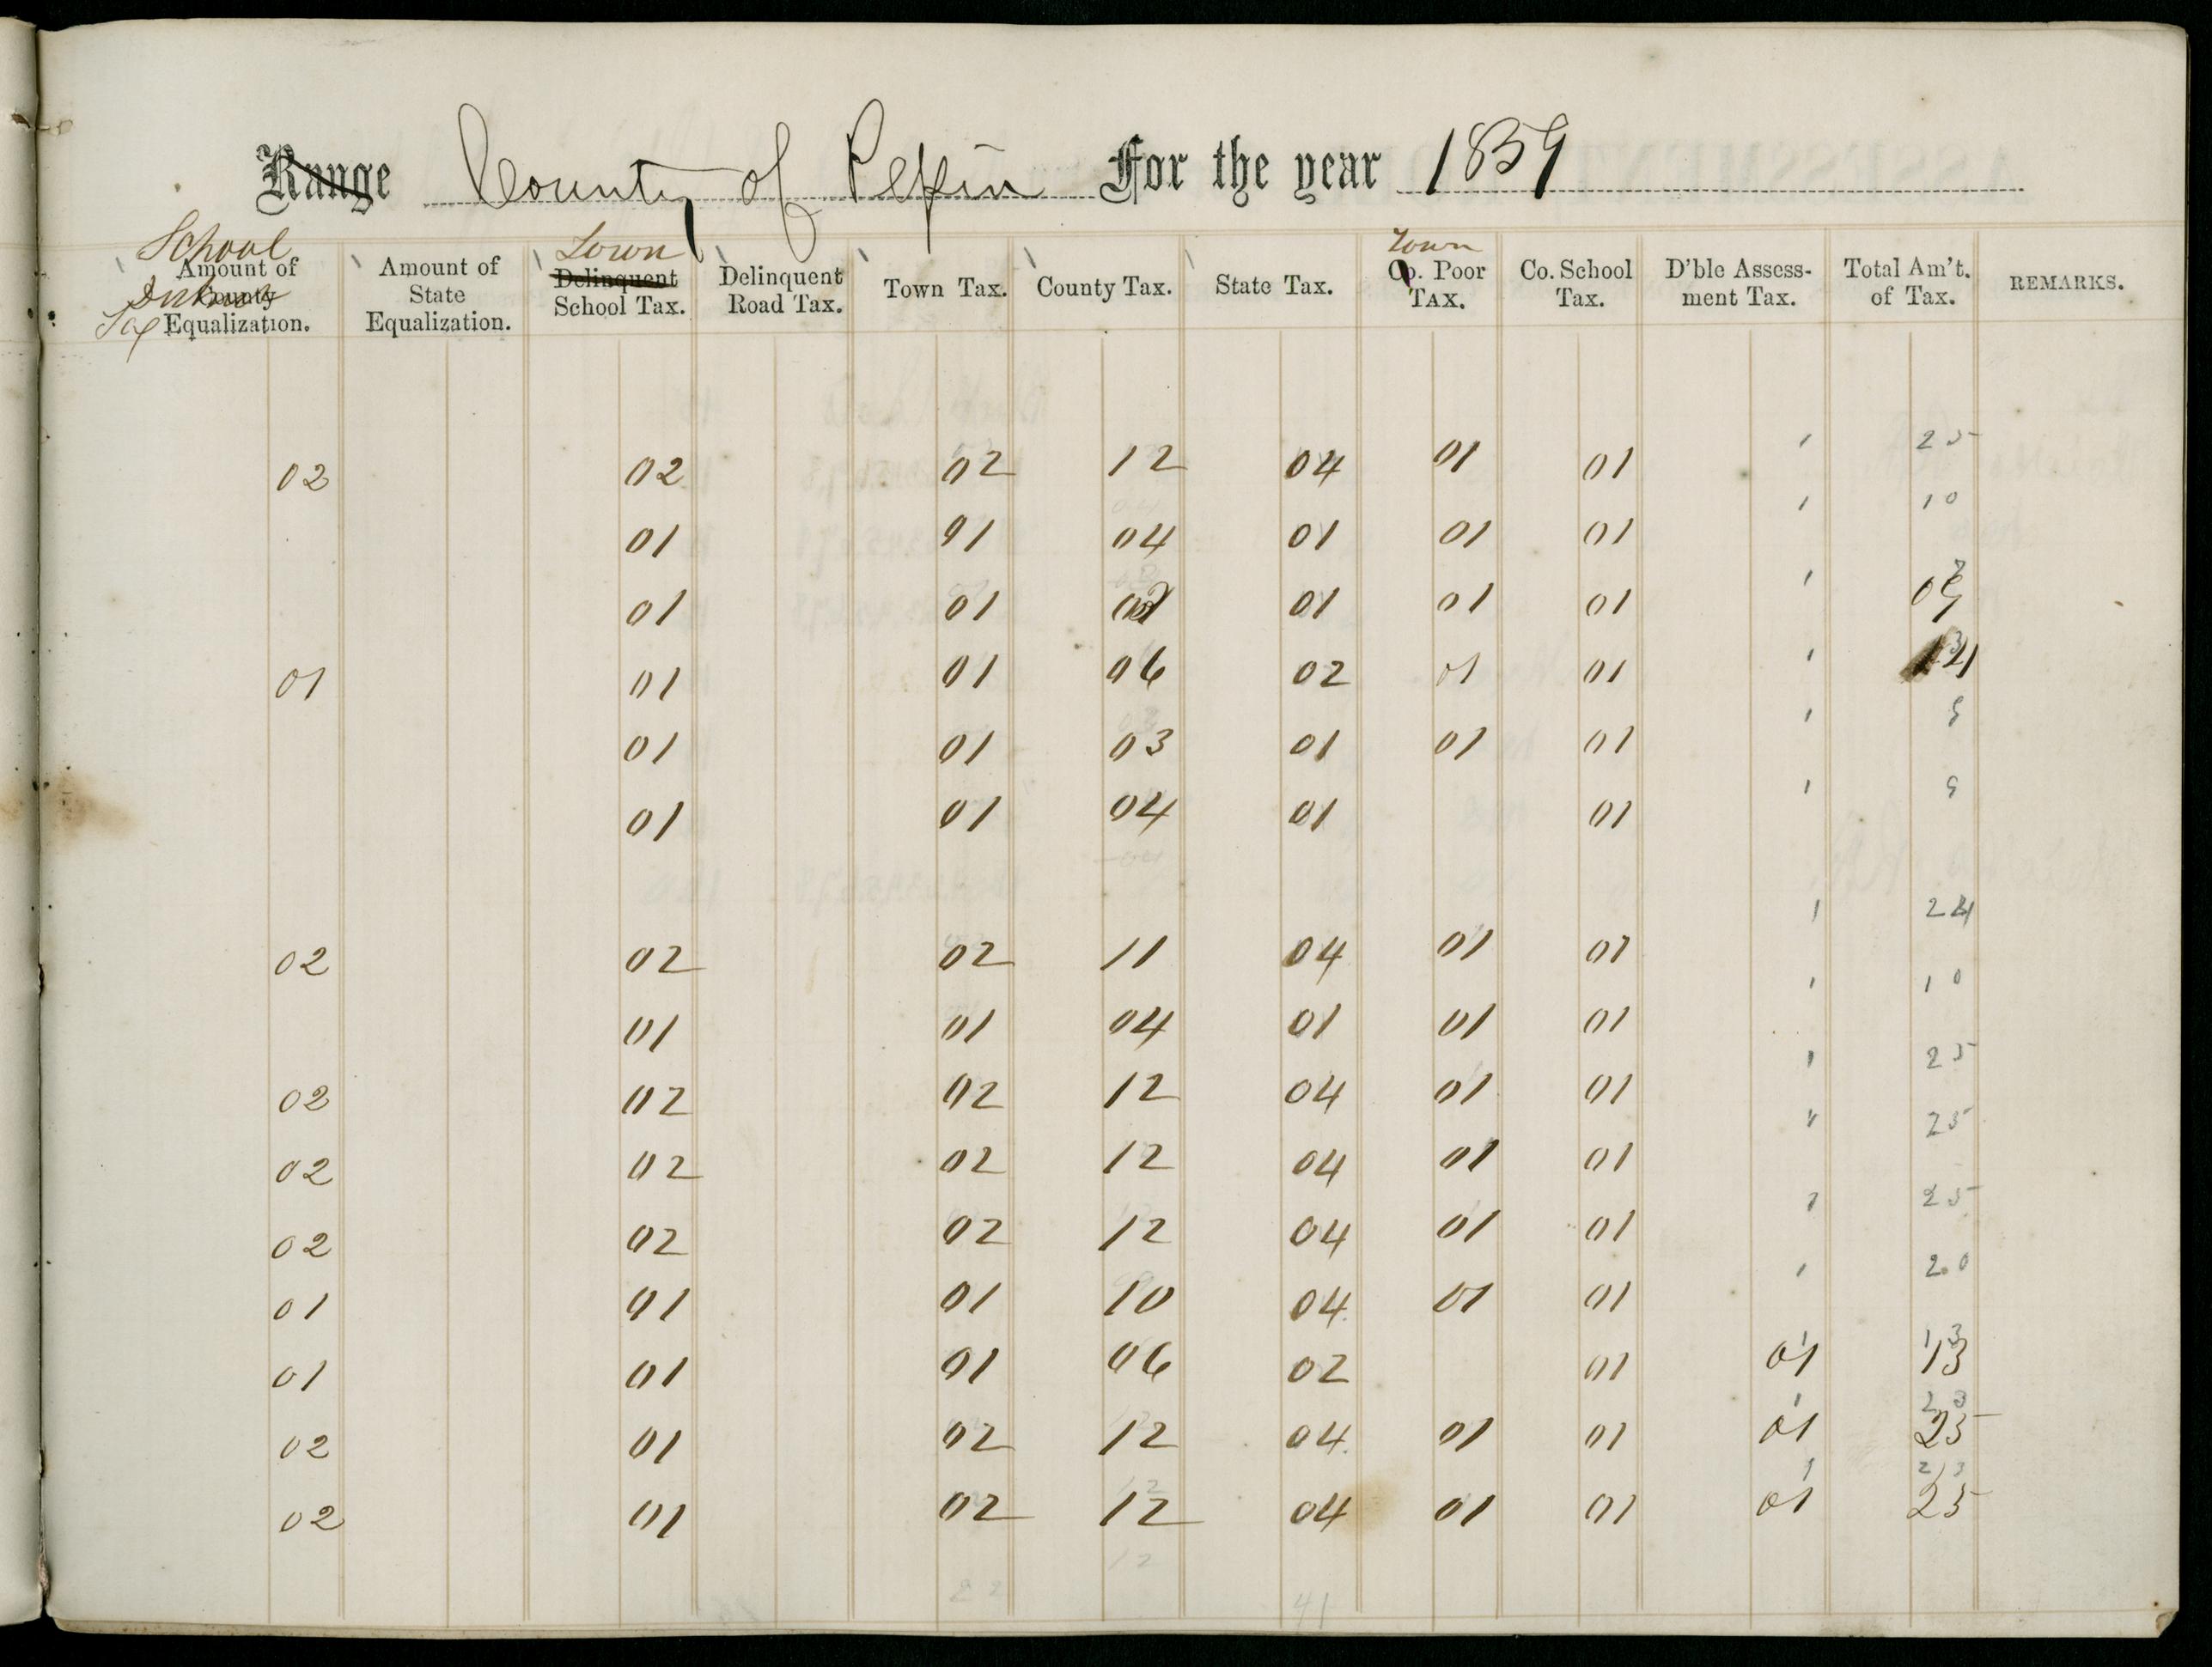 Range County of Pepin For the year 1859
School District Tax Amount of County Equalization. Amount of State Equalization. Town Delinquent School Tax. Delinquent Road Tax. Town Tax. County Tax. State Tax. Town Co. Poor Tax. Co. School Tax. D'ble Assessment Tax. Total Am't. of Tax. REMARKS.
02 02 02 12 04 01 01 1 25
01 01 04 01 01 01 1 10
01 01 01 01 01 1
01 01 01 06 02 01 01 1
01 01 03 01 01 01 1
01 01 04 01 01 1 9
02 02 02 11 04 01 01 1 24
01 01 04 01 01 01 1 10
02 02 02 12 04 01 01 1 25
02 02 02 12 04 01 01 25
02 02 02 12 04 01 01 1 25
01 01 01 10 04 01 01 1 20
01 01 01 06 02 01 01 13
02 01 02 12 04 01 01 01 25
02 01 02 12 04 01 01 01 25